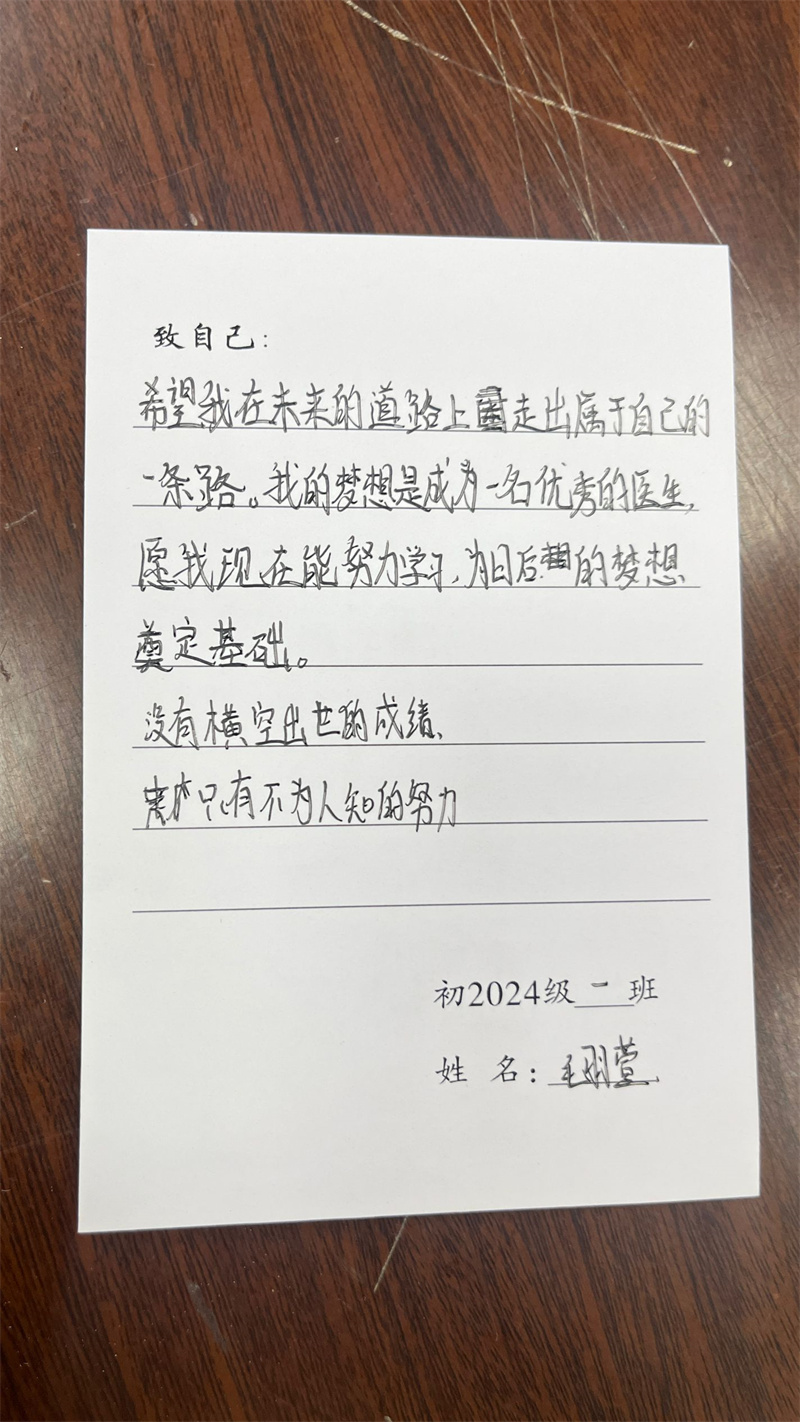 致自己：
希望我在未来的道路上走出属于自己的
一条路。我的梦想是成为一名优秀的医生，
愿我现在能努力学习，为日后的梦想
奠定基础。
没有横空出世的成绩、
只有不为人知的努力
初2024级一班
姓 名：毛羽萱